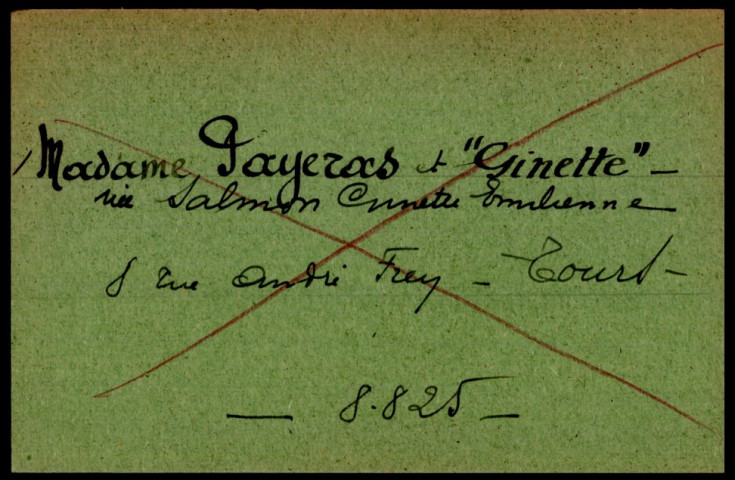 Madame Payeras et "Ginette" —
née Salmon Annette Emilienne
8 rue André Frey — Tours —
— 8.825 —